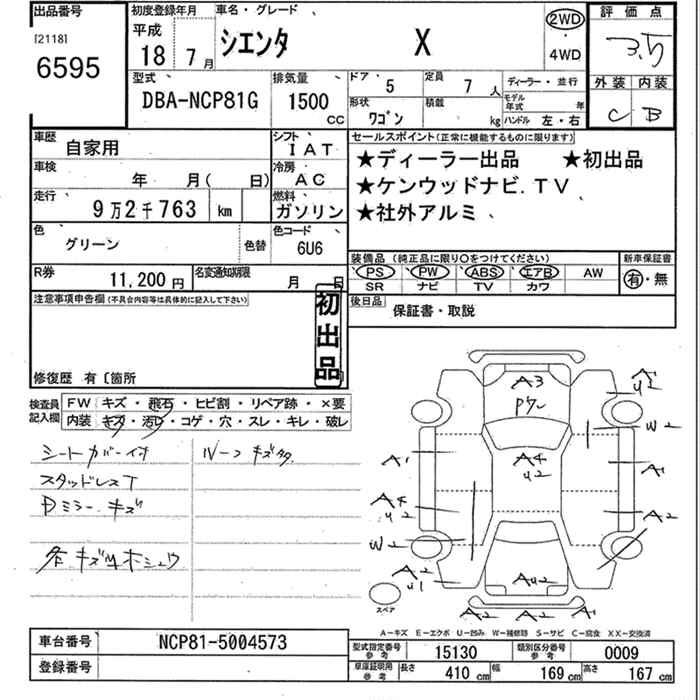 出品番号
[2118]
6595
初度登録年月
平成
18年 7月
車名・グレード
シエンタ X
2WD
・
4WD
評価点
3.5
外装 内装
C B
型式
DBA-NCP81G
排気量
1500
CC
ドア 5
定員 7 人
形状 ワゴン
積載 kg
ディーラー・並行
モデル年式 年
ハンドル 左・右
車歴 自家用
シフト IAT
車検 年 月( 日)
冷房 AC
走行 9万2千763 km
燃料 ガソリン
色 グリーン
色替
色コード 6U6
R券 11,200円
名変通知期限 月 日
セールスポイント(正常に機能するものに限ります)
★ディーラー出品 ★初出品
★ケンウッドナビ.TV
★社外アルミ
装備品 (純正品に限り〇をつけてください)
PS PW ABS エアB AW
SR ナビ TV カワ
新車保証書
有・無
後日品
保証書・取説
注意事項申告欄(不具合内容等は具体的に記入して下さい)
初出品
修復歴 有〔箇所
検査員記入欄
FW キズ・飛石・ヒビ割・リペア跡・×要
内装 キズ・汚レ・コゲ・穴・スレ・キレ・破レ
シートカバー付
スタッドレスT
Dミラー キズ
各キズ
ルーフ キズ
A3
A1
U2
W2
A1
A4
U2
A1
A4
U2
A2
W2
A2
U1
AU2
A2
A2
A1
スペア
A-キズ E-エクボ U-凹み W-補修跡 S-サビ C-腐食 XX-交換済
車台番号 NCP81-5004573
登録番号
型式指定番号 参考 15130
類別区分番号 参考 0009
車庫証明用 参考 長さ 410 cm 幅 169 cm 高さ 167 cm